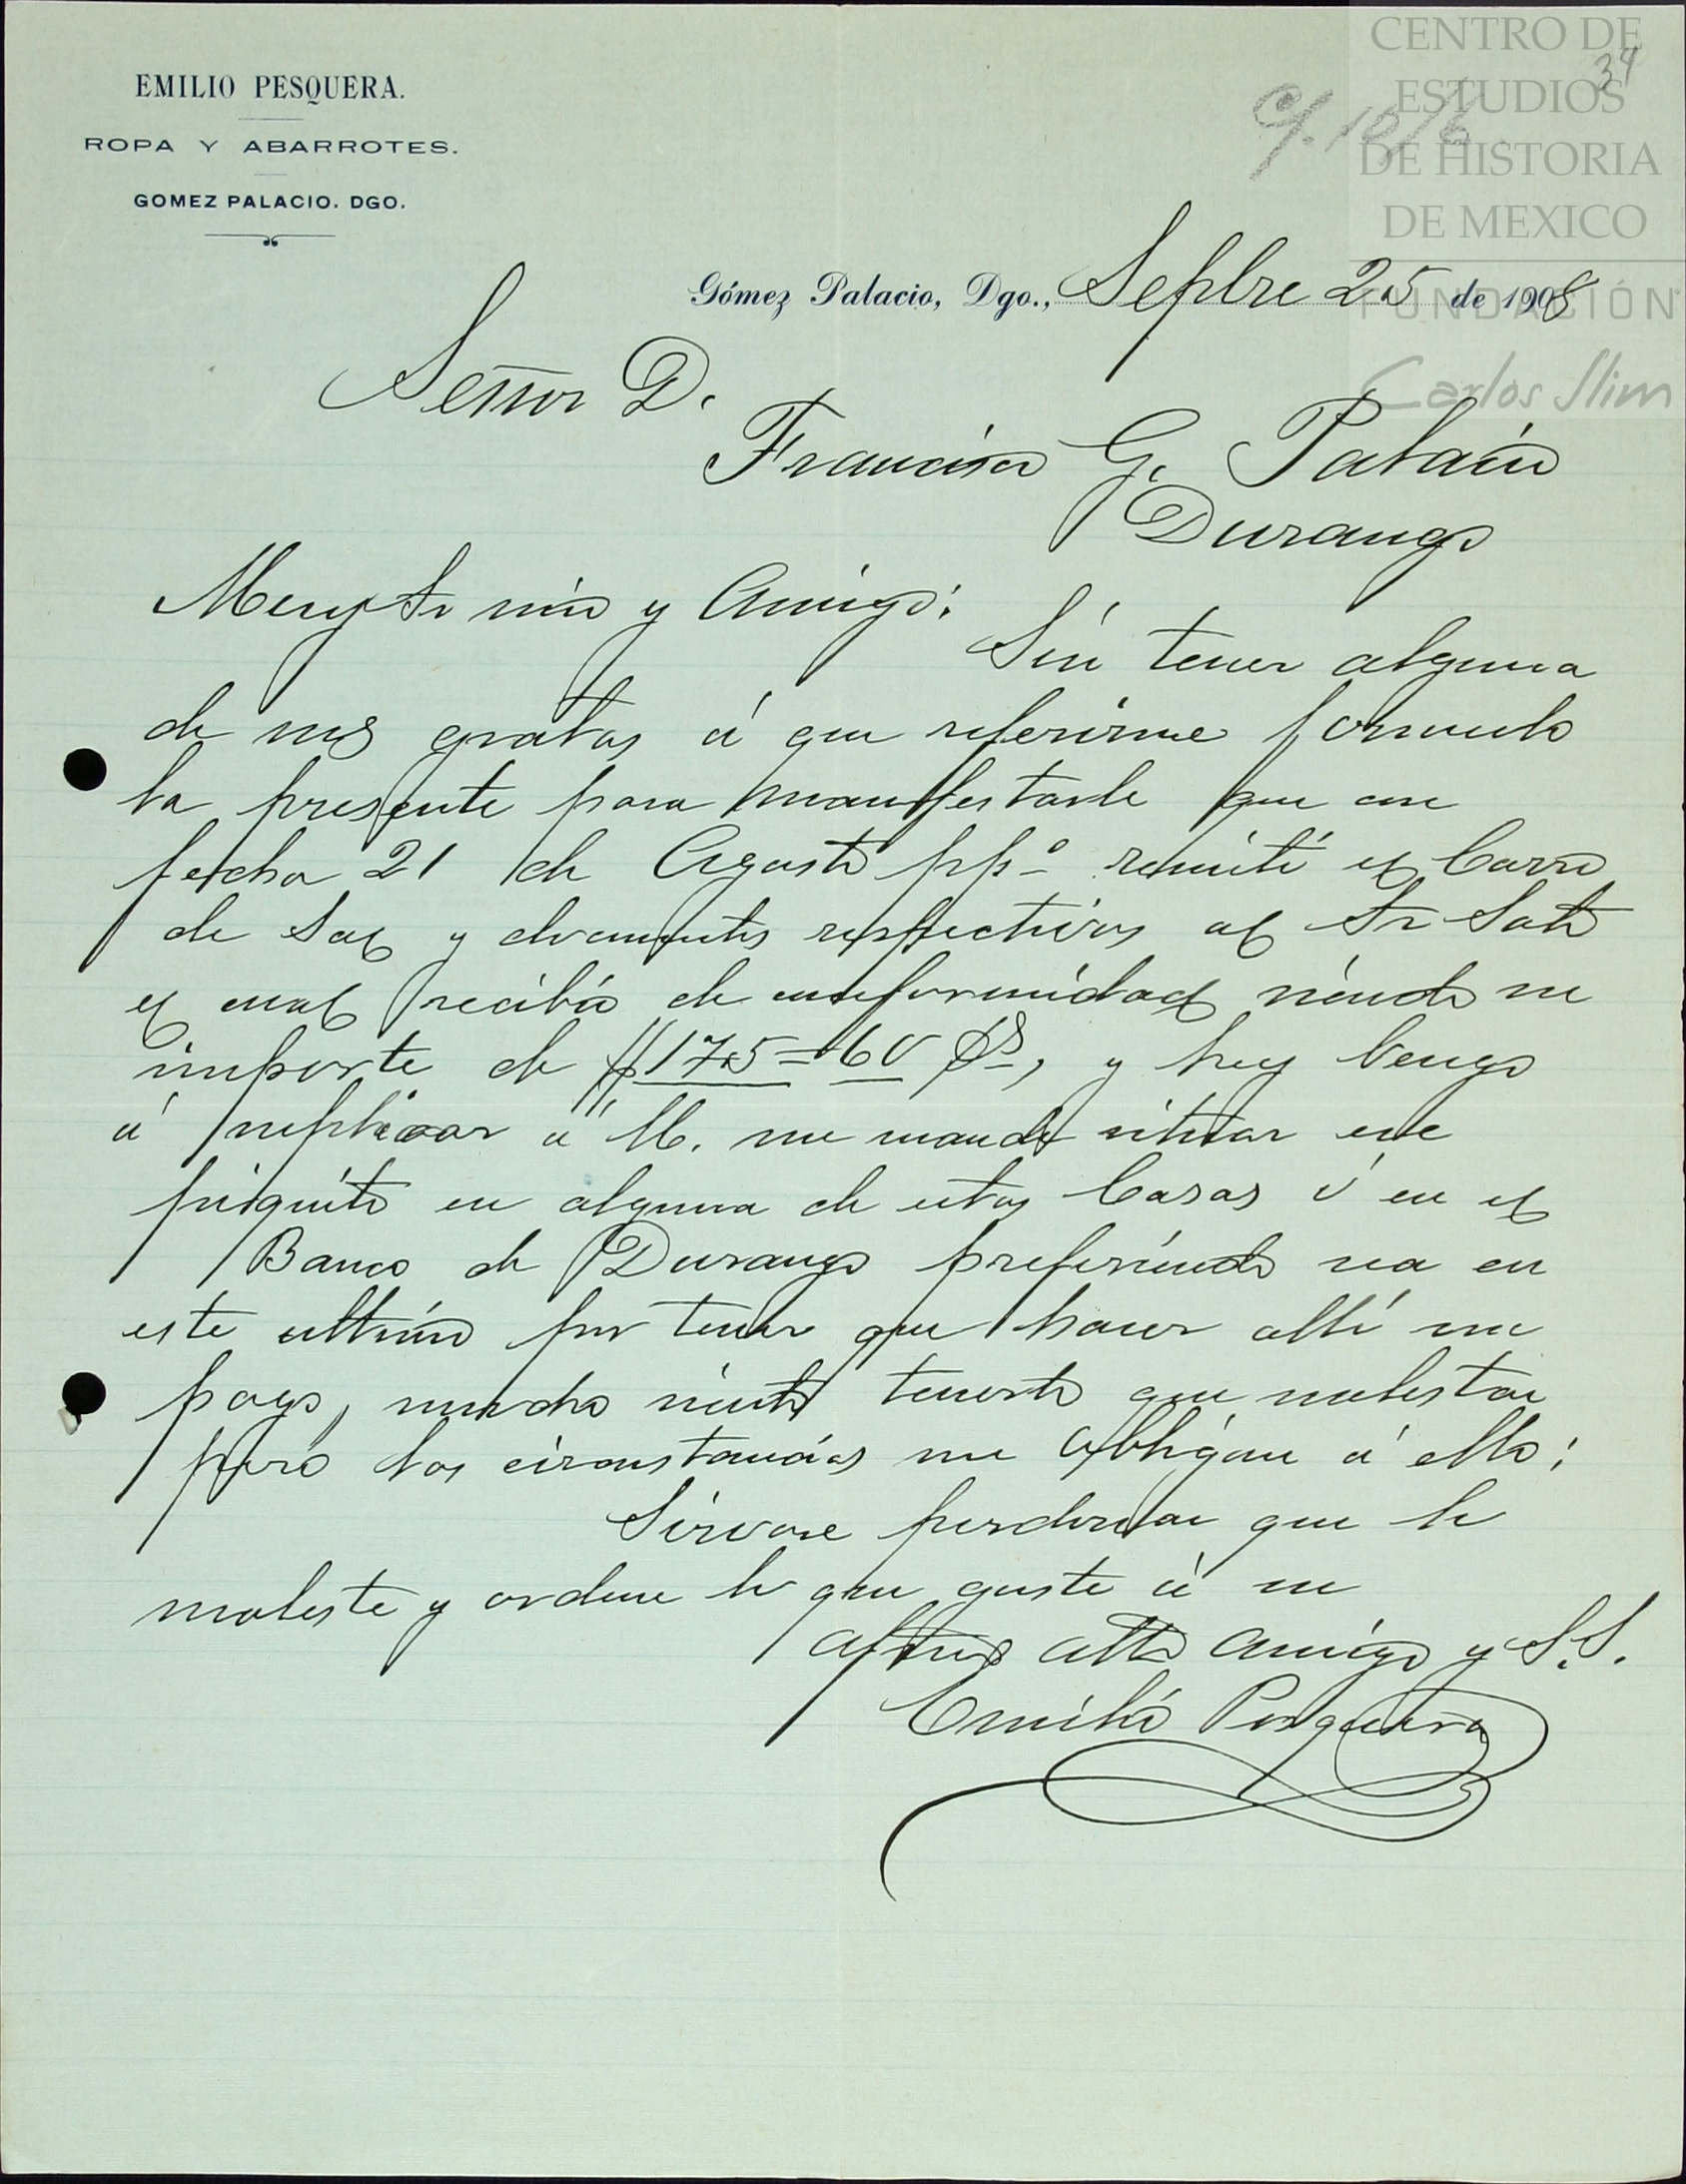 CENTRO DE
ESTUDIOS
DE HISTORIA
DE MEXICO
FUNDACIÓN
Carlos Slim
34
C/. 10/6
EMILIO PESQUERA.
ROPA Y ABARROTES.
GOMEZ PALACIO. DGO.
Gómez Palacio, Dgo., Sepbre 25 de 1908
Señor D.
Francisco G. Palacio
Durango
Muy Sr mio y Amigo:
Sin tener alguna
de sus gratas á que referirme formulo
la presente para manifestarle que con
fecha 21 de Agosto ppº remití el Carro
de Sal y documentos respectivos al Sr Soto
el cual recibió de conformidad siendo su
importe de $175=60 , y hoy vengo
á suplicar á U. me mande situar ese
piquito en alguna de estas Casas ó en el
Banco de Durango prefiriendo sea en
este ultimo por tener que hacer allí un
pago, mucho siento tenerlo que molestar
pero las circunstancias me obligan á ello;
Sirvase perdonar que le
moleste y ordene lo que guste á su
afmo atto amigo y S.S.
Emilio Pesquera